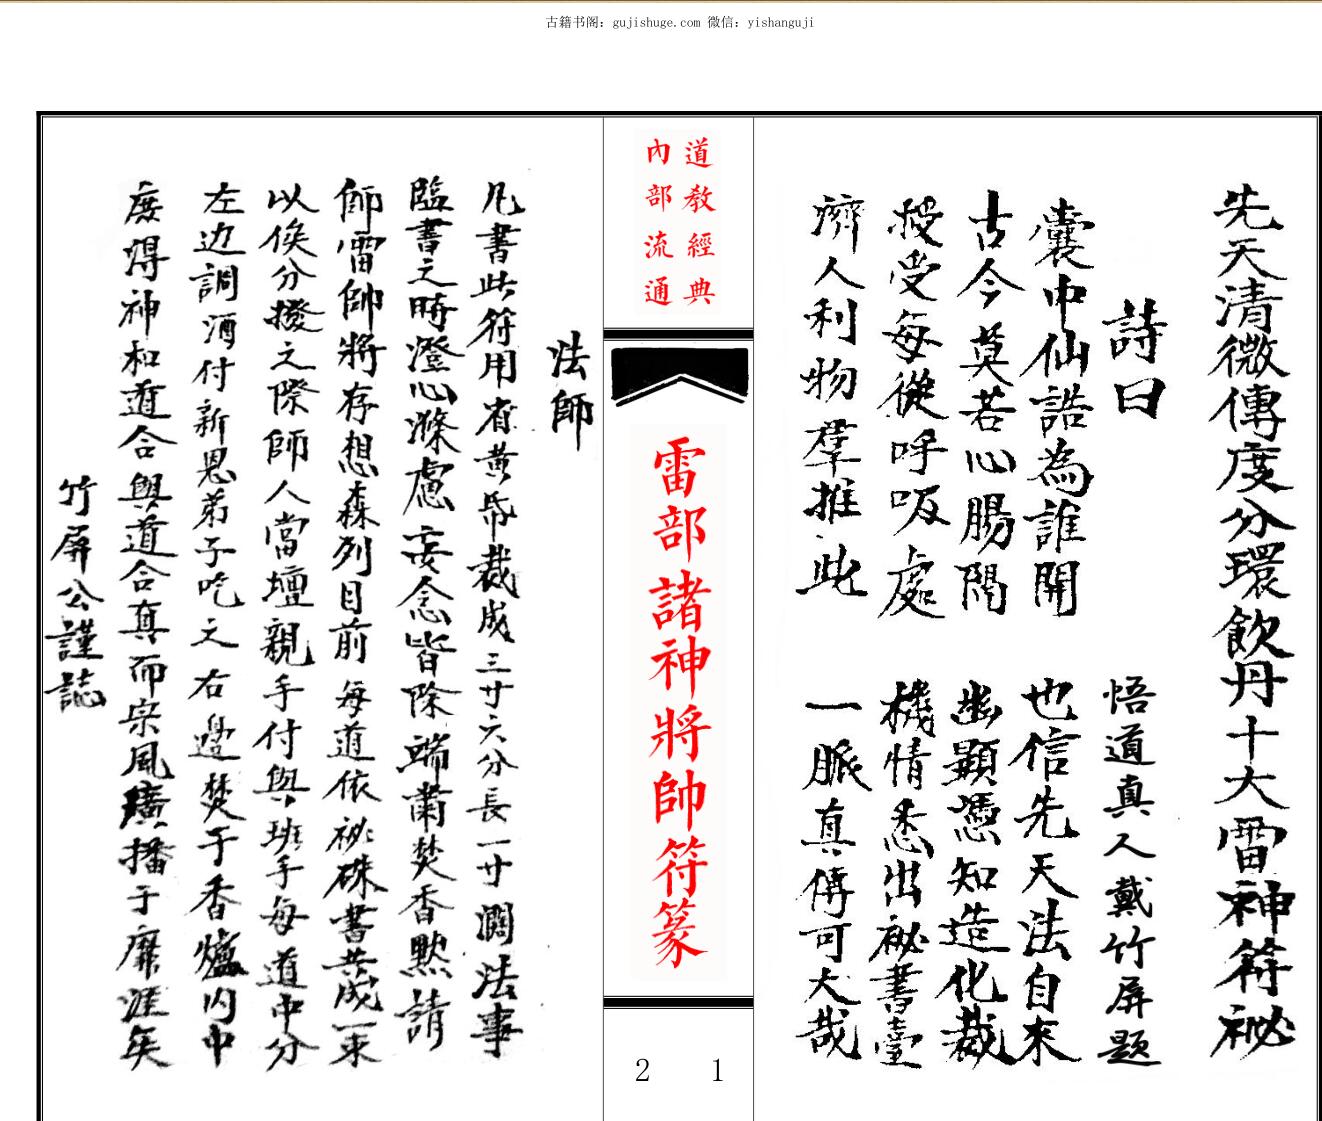 古籍书阁：gujishuge.com 微信：yishanguji
先天清微傳度分環飲丹十大雷神符祕
詩曰
悟道真人戴竹屏題
囊中仙誥為誰開
也信先天法自來
古今莫若心腸隔
幽顯憑知造化裁
授受每從呼吸處
機情悉出祕書臺
濟人利物羣推此
一脈真傳可大哉
道教經典
內部流通
雷部諸神將帥符篆
2 1
法師
凡書此符用省黃帋裁成三寸六分長一寸濶法事
臨書之時澄心滌慮妄念皆除端肅焚香默請
師雷帥將存想森列目前每道依祕硃書共成一束
以俟分撥之際師人當壇親手付與班手每道中分
左边調酒付新恩弟子吃之右邊焚于香爐内中
庻得神和道合與道合真而宗風廣播于靡涯矣
竹屏公謹誌